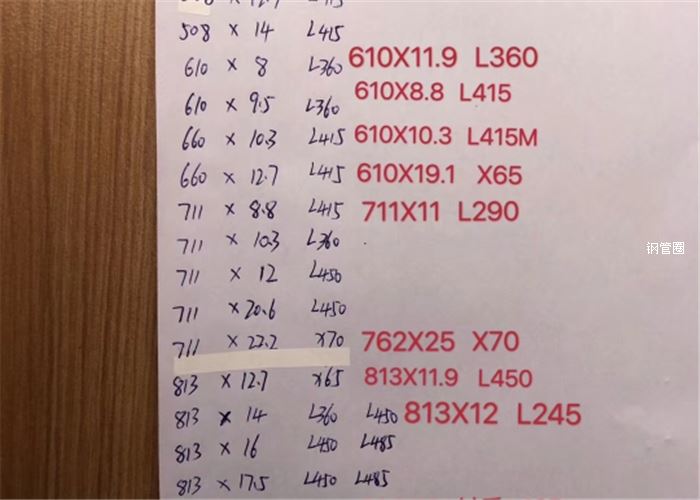 508 x 14 L415
610 x 8 L360 610X11.9 L360
610 x 9.5 L360 610X8.8 L415
660 x 10.3 L415 610X10.3 L415M
660 x 12.7 L415 610X19.1 X65
711 x 8.8 L415 711X11 L290
711 x 10.3 L360
钢管圈
711 x 12 L450
711 x 20.6 L450
711 x 22.2 x70 762X25 X70
813 x 12.7 x65 813X11.9 L450
813 x 14 L360 L450 813X12 L245
813 x 16 L450 L485
813 x 17.5 L450 L485